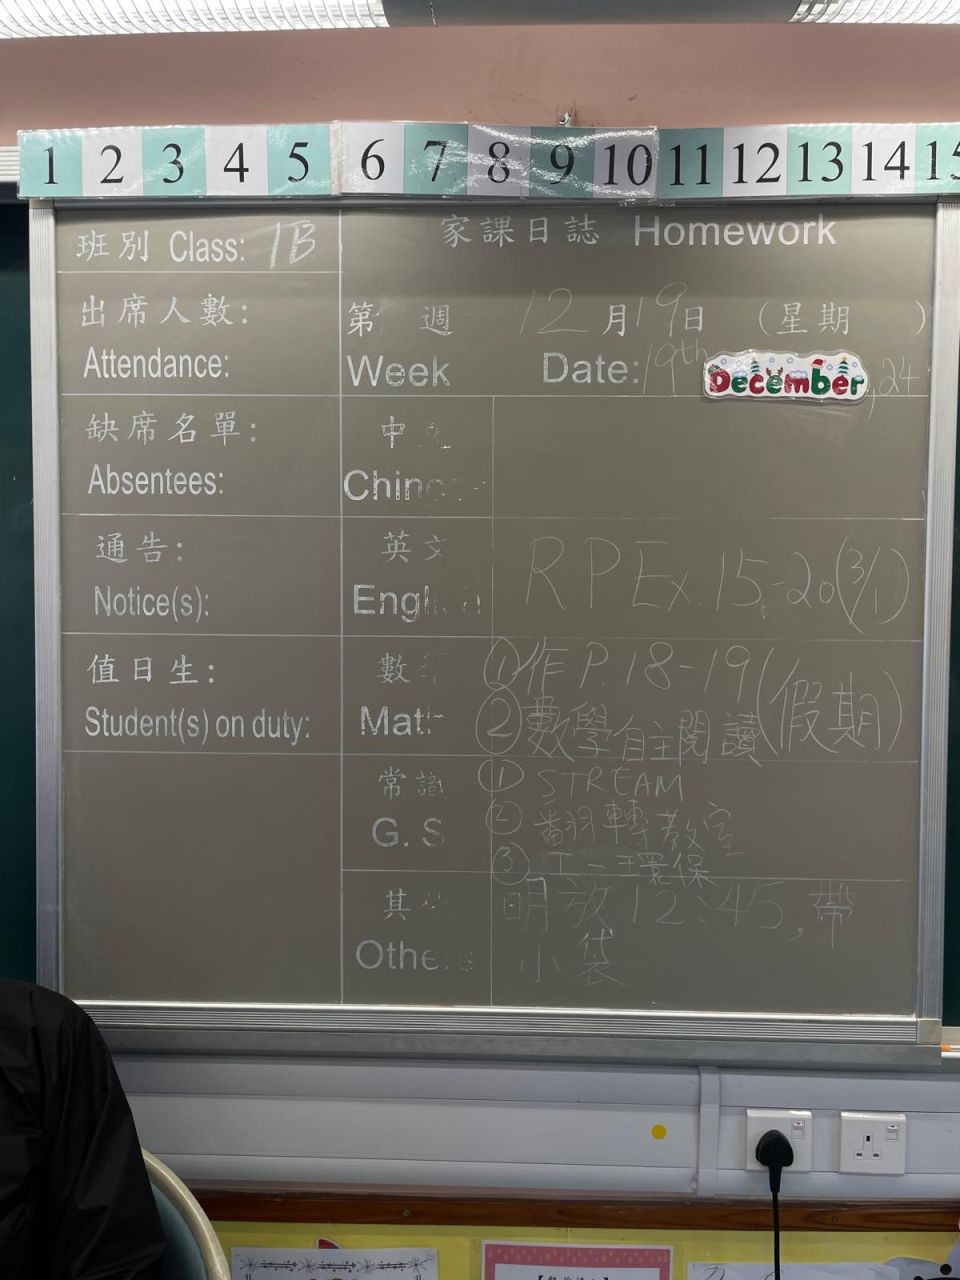 1 2 3 4 5 6 7 8 9 10 11 12 13 14 15
班別 Class: 1B
家課日誌 Homework
出席人數:
Attendance:
第 週 12月19日 (星期 )
Week Date: 19th December, 24
缺席名單:
Absentees:
中文
Chinese
通告:
Notice(s):
英文
English
RP Ex. 15-20(3/1)
值日生:
Student(s) on duty:
數
Math
①作P.18-19
②數學自主閱讀
(假期)
常識
G. S.
① STREAM
② 翻轉教室
③ 環保
其他
Others
明放12:45,帶
小袋